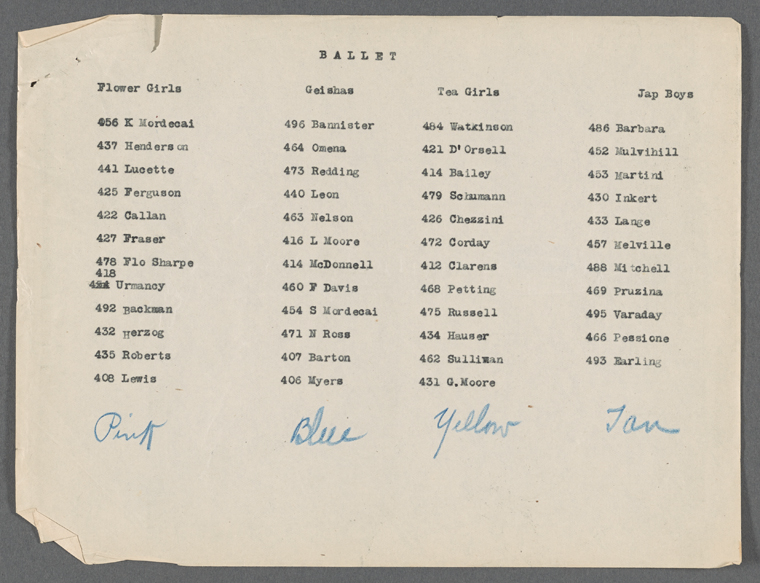 BALLET
Flower Girls Geishas Tea Girls Jap Boys
456 K Mordecai 496 Bannister 484 Watkinson 486 Barbara
437 Henderson 464 Omena 421 D'Orsell 452 Mulvihill
441 Lucette 473 Redding 414 Bailey 453 Martini
425 Ferguson 440 Leon 479 Schumann 430 Inkert
422 Callan 463 Nelson 426 Chezzini 433 Lange
427 Fraser 416 L Moore 472 Corday 457 Melville
478 Flo Sharpe 414 McDonnell 412 Clarens 488 Mitchell
418
Urmancy 460 F Davis 468 Petting 469 Pruzina
492 Backman 454 S Mordecai 475 Russell 495 Varaday
432 Herzog 471 N Ross 434 Hauser 466 Pessione
435 Roberts 407 Barton 462 Sulliman 493 Earling
408 Lewis 406 Myers 431 G.Moore
Pink Blue Yellow Tan